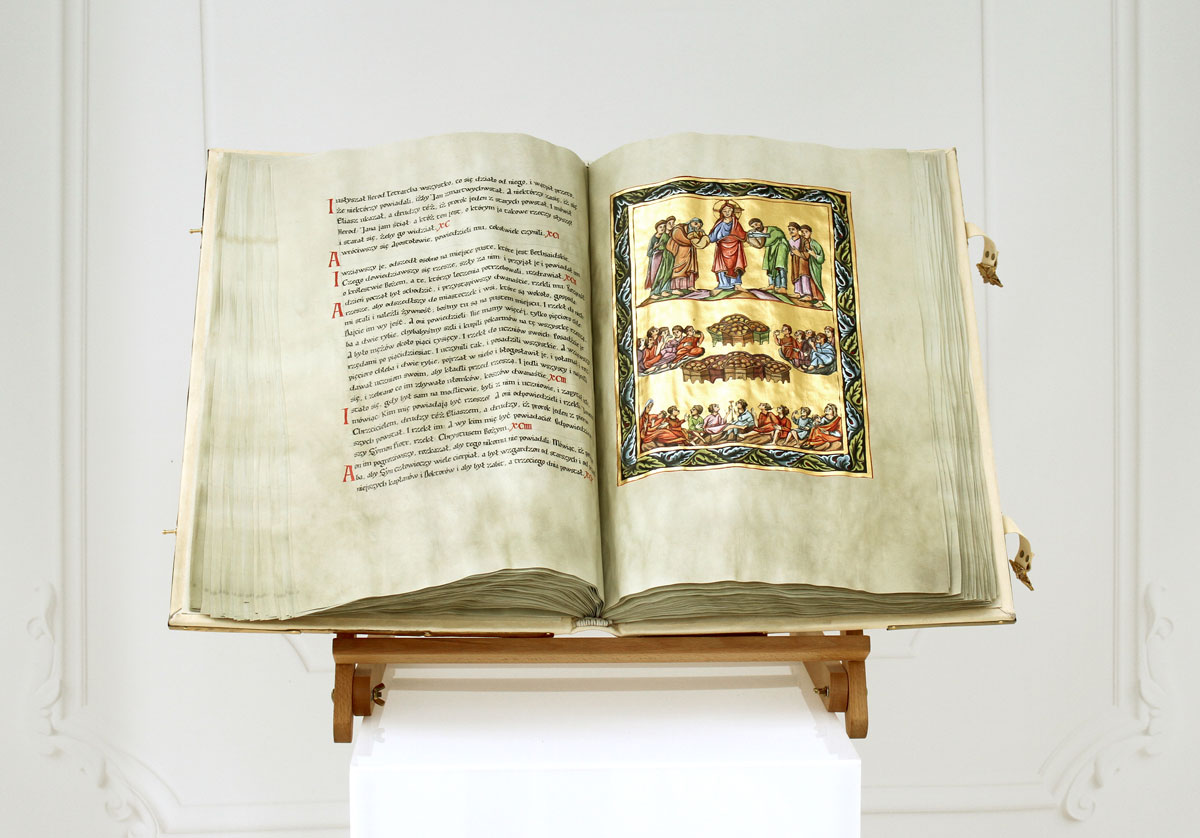 I usłyszał Herod Tetrarcha wszystko, co się działo od niego, i wątpił przeto,
że niektórzy powiadali, iżby Jan zmartwychwstał. A niektórzy zasię, iż się
Eliasz ukazał, a drudzy téż, iż prorok jeden z starych powstał. I mówił
Herod: Jana jam ściął: a któż ten jest, o którym ja takowe rzeczy słyszę?
I starał się, żeby go widział. XC
A wróciwszy się Apostołowie, powiedzieli mu, cokolwiek czynili. XCI
I wziąwszy je, odszedł osobno na miejsce puste, które jest Bethsaidskie.
Czego dowiedziawszy się rzesze, szły za nim: i przyjął je i powiadał im
o królestwie Bożem, a te, którzy leczenia potrzebowali, uzdrawiał. XCII
A dzień począł był schodzić, i przystąpiwszy dwanaście, rzekli mu: Rozpuść
rzesze, aby odszedłszy do miasteczek i wsi, które są wokoło, gospodą
stali i naleźli żywność: bośmy tu są na pustem miejscu. I rzekł do nich:
Dajcie im wy jeść. A oni powiedzieli: Nie mamy więcéj, tylko pięcioro chle-
ba a dwie rybie, chybabyśmy szli i kupili pokarmów na tę wszystkę rzeszą.
A było mężów około pięci tysięcy. I rzekł do uczniów swoich: Posadźcie je
rzędami po pięćdziesiąt. I uczynili tak, i posadzili wszystkie. A wziąwszy
pięcioro chleba i dwie rybie, pojrzał w niebo i błogosławił je, i połamał i roz-
dawał uczniom swoim, aby kładli przed rzeszą. I jedli wszyscy i najedli
się, i zebrano co im zbywało ułomków, koszów dwanaście. XCIII
I stało się, gdy był sam na modlitwie, byli z nim i uczniowie, i zapytał
mówiąc: Kim mię powiadają być rzesze? A oni odpowiedzieli i rzekli:
Chrzcicielem, a drudzy Eliaszem, a drudzy, iż prorok jeden z pierw-
szych powstał. I rzekł im: A wy kim mię być powiadacie? Odpowiedziawszy
Symon Piotr, rzekł: Chrystusem Bożym. XCIIII
A on im pogroziwszy, rozkazał, aby tego nikomu nie powiadali, Mówiąc, iż potrze-
ba, aby Syn człowieczy wiele cierpiał, a był wzgardzon od starszych i od
niejszych kapłanów i Doktorów i aby był zabit, a trzeciego dnia powstał.